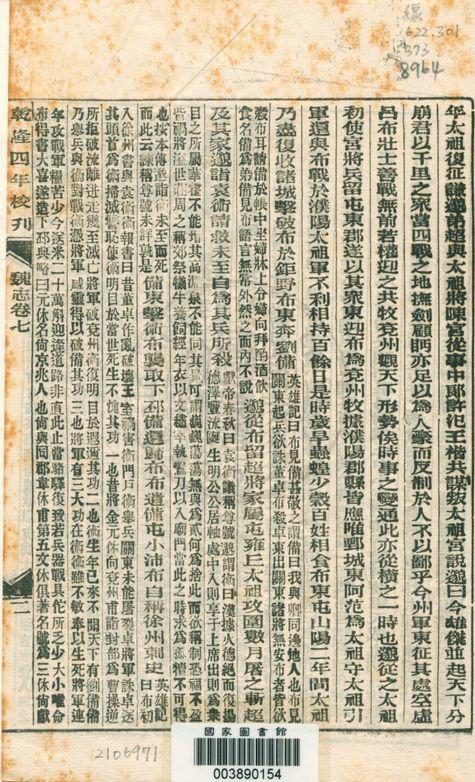 年太祖復征謙邈弟超與太祖將陳宮從事中郎許汜王楷共謀叛太祖宮說邈曰今雄傑並起天下分
崩君以千里之衆當四戰之地撫劍顧眄亦足以為人豪而反制於人不以鄙乎今州軍東征其處空虛
呂布壯士善戰無前若權迎之共牧兗州觀天下形勢俟時事之變通此亦從橫之一時也邈從之太祖
初使宮將兵留屯東郡遂以其衆東迎布為兗州牧據濮陽郡縣皆應唯鄄城東阿范為太祖守太祖引
軍還與布戰於濮陽太祖軍不利相持百餘日是時歲旱蟲蝗少穀百姓相食布東屯山陽二年間太祖
乃盡復收諸城擊破布於鉅野布東奔劉備
英雄記曰布見備甚敬之謂備曰我與卿同邊地人也布見
關東起兵欲誅董卓布殺卓東出關東諸將無安布者皆欲
殺布耳請備於帳中坐婦牀上令婦向拜酌酒飲
食名備為弟備見布語言無常外然之而內不說
邈從布留超將家屬屯雍丘太祖攻圍數月屠之斬超
及其家邈詣袁術請救未至自為其兵所殺
獻帝春秋曰袁術議稱尊號邈謂術曰漢據火德絕而復揚
德澤豐流誕生明公公居軸處中入則享于上席出則為衆
目之所屬華霍不能增其高淵泉不能同其量可謂巍巍蕩蕩無與為貳何為捨此而欲稱制恐福不盈
眥禍將溢世莊周之稱郊祭犧牛養飼經年衣以文繡宰執鸞刀以入廟門當此之時求為孤犢不可得
也按本傳邈詣術未至而死
而此云諫稱尊號未詳孰是
備東擊術布襲取下邳備還歸布布遣備屯小沛布自稱徐州刺史
英雄記
曰布初
入徐州書與袁術術報書曰昔董卓作亂破壞王室禍害術門戶術舉兵關東未能屠裂卓將軍誅卓送
其頭首為術掃滅讎恥使術明目於當世死生不愧其功一也昔將金元休向兗州甫詣封部為曹操逆
所拒破流離迸走幾至滅亡將軍破兗州術復明目於遐邇其功二也術生年已來不聞天下有劉備備
乃舉兵與術對戰術憑將軍威靈得以破備其功三也將軍有三大功在術術雖不敏奉以生死將軍連
年攻戰軍糧苦少今送米二十萬斛迎逢道路非直此止當駱驛復致若兵器戰具佗所乏少大小唯命
布得書大喜遂造下邳典略曰元休名尚京兆人也尚與同郡韋休甫第五文休俱著名號為三休尚獻
乾隆四年校刊
魏志卷七
二
622.301
573
8964
2106971
國家圖書館
003890154